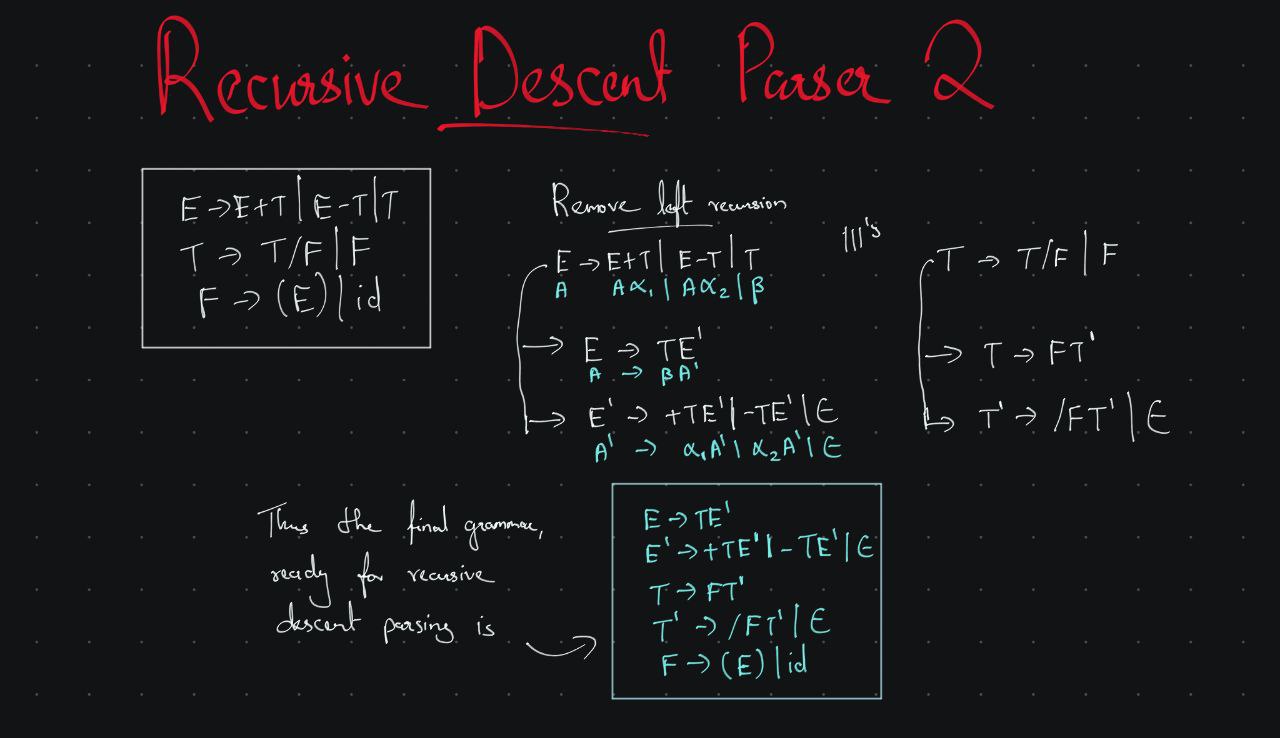 Recursive Descent Parser 2
E → E+T | E-T | T
T → T/F | F
F → (E) | id
Remove left recursion
E → E+T | E-T | T
A Aα₁ | Aα₂ | β
E → TE'
A → βA'
E' → +TE' | -TE' | ϵ
A' → α₁A' | α₂A' | ϵ
|||'s
T → T/F | F
T → FT'
T' → /FT' | ϵ
Thus the final grammar,
ready for recursive
descent parsing is
E → TE'
E' → +TE' | - TE' | ϵ
T → FT'
T' → /FT' | ϵ
F → (E) | id